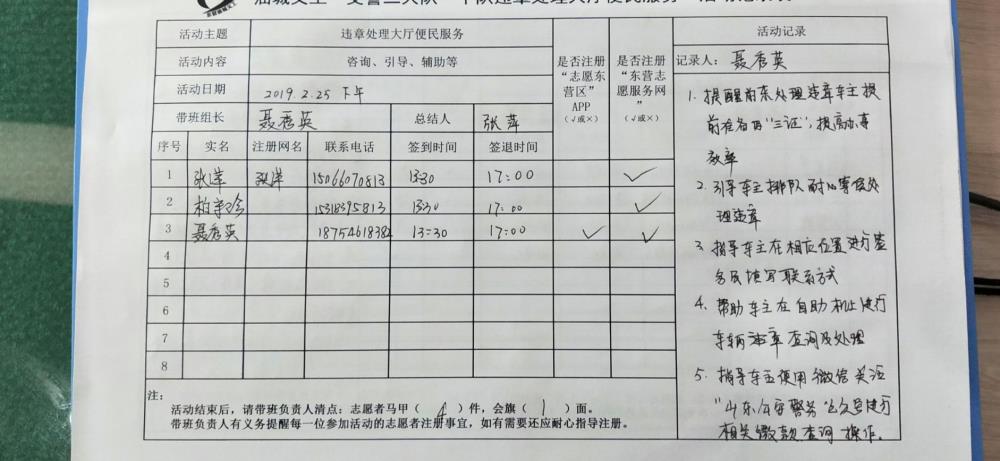 活动主题 违章处理大厅便民服务
活动内容 咨询、引导、辅助等
活动日期 2019.2.25 下午
带班组长 聂秀英 总结人 张萍
是否注册“志愿东营区”APP（√或×）
是否注册“东营志愿服务网”（√或×）
序号 实名 注册网名 联系电话 签到时间 签退时间
1 张洋 张洋 15066070813 13:30 17:00 ✓
2 15318395813 13:30 17:00 ✓
3 聂秀英 18754618384 13:30 17:00 ✓ ✓
4
5
6
7
8
注：
活动结束后，请带班负责人清点：志愿者马甲（ 4 ）件，会旗（ 1 ）面。
带班负责人有义务提醒每一位参加活动的志愿者注册事宜，如有需要还应耐心指导注册。
活动记录
记录人：聂秀英
1. 提醒前来处理违章车主提
前准备好“三证”，提高办事
效率
2. 引导车主排队耐心等候处
理违章
3. 指导车主在相应位置进行签
名及填写联系方式
4. 帮助车主在自助机上进行
车辆违章查询及处理
5. 指导车主使用微信关注
“山东公安警务”公众号进行
相关缴款查询操作。